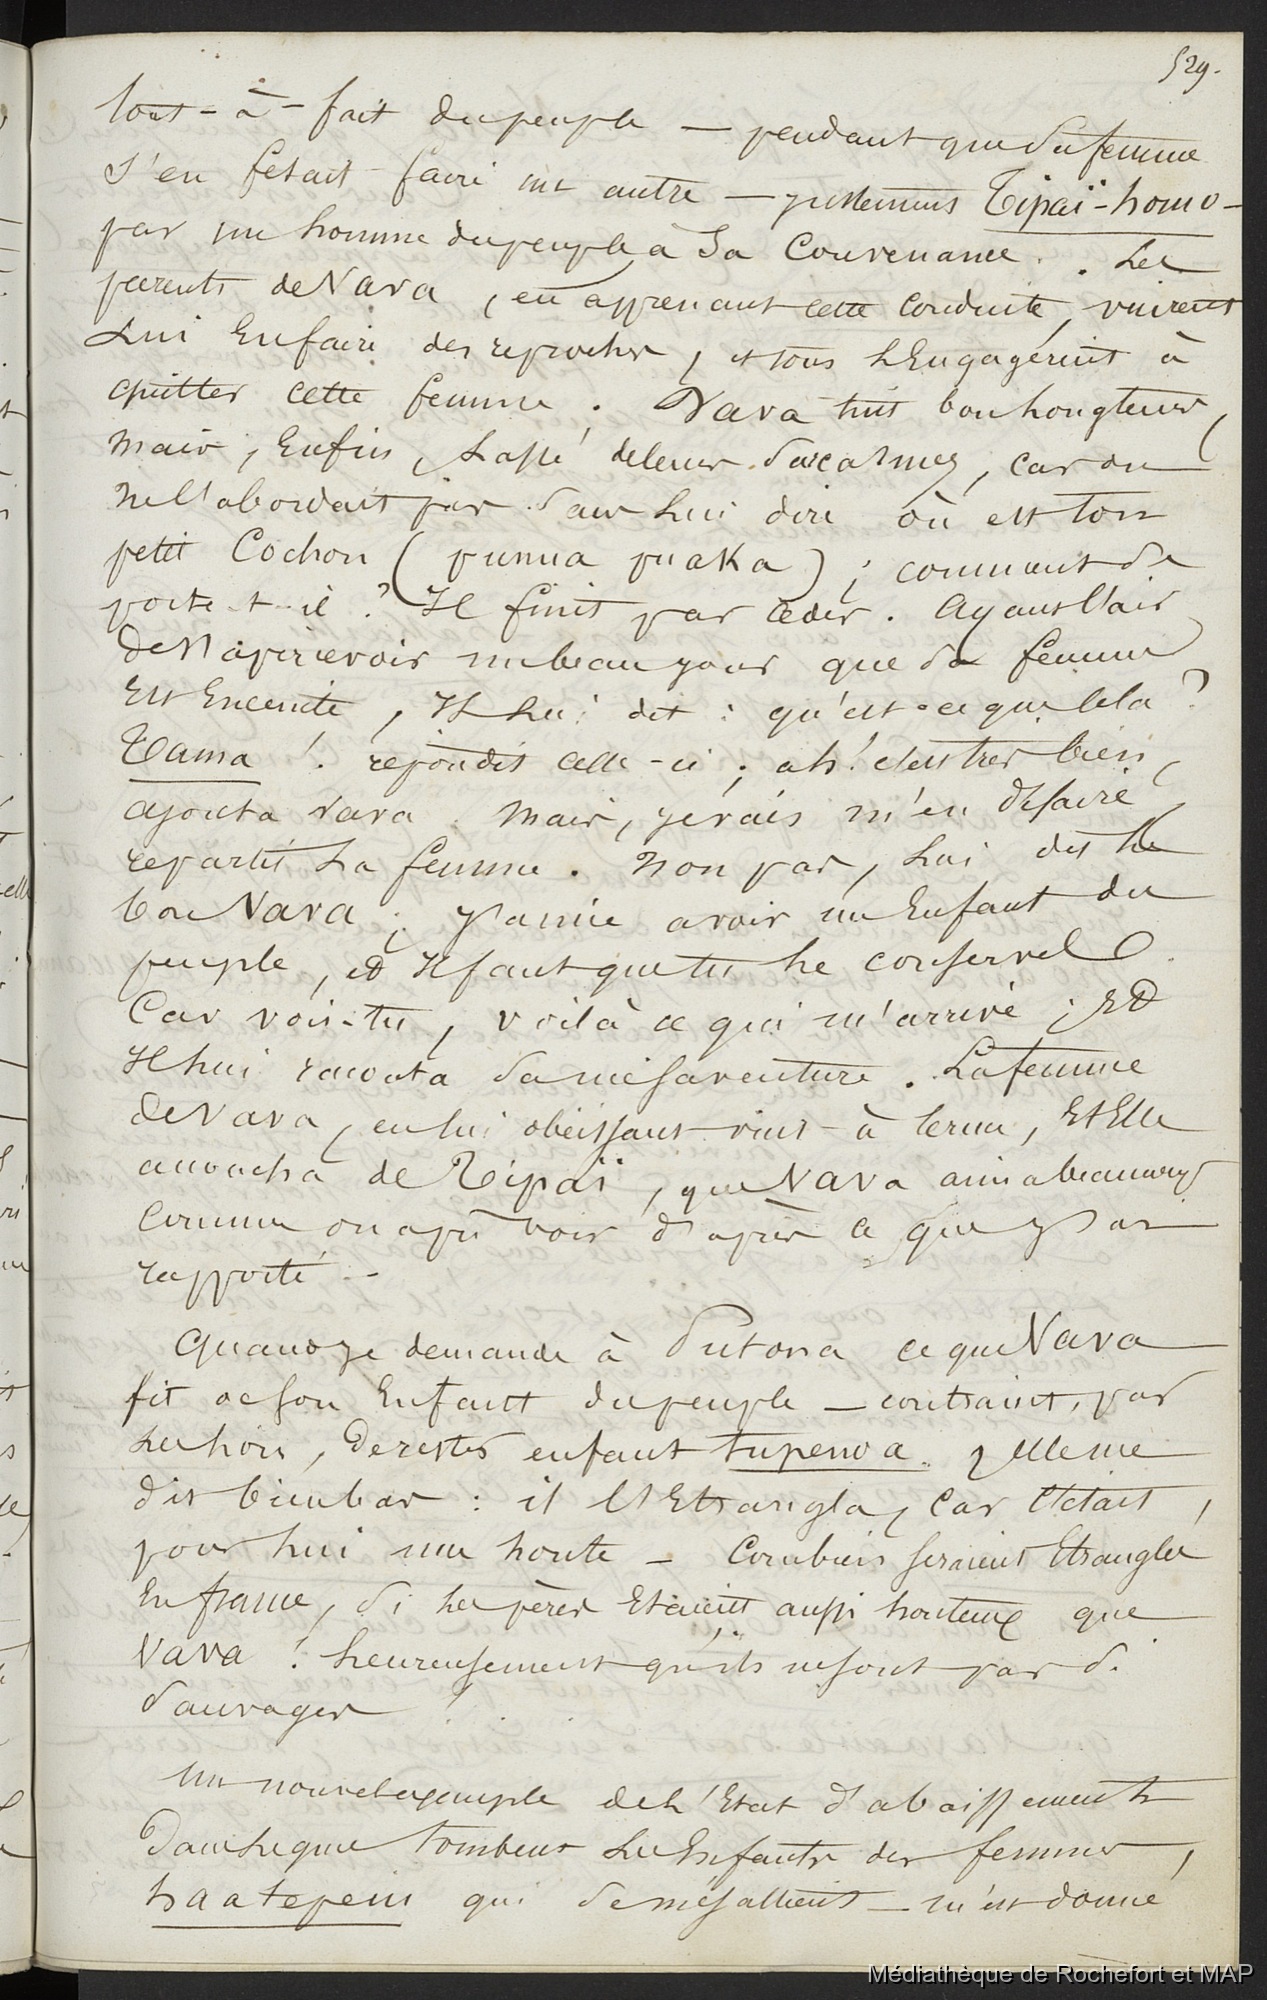 529.
tout-à-fait du peuple — pendant que sa femme
s'en fesait faire un autre — justement Tipaï-homo-
par un homme du peuple à sa convenance. . Les
parents de Vava, en apprenant cette conduite, vinrent
lui en faire des reproches, et tous l'engagèrent à
quitter cette femme. Vava tint bon longtems,
mais, enfin, de leurs sarcasmes, car on
ne l'abordait pas sans lui dire où est ton
petit cochon (punua puaka); comment se
porte-t-il? Il finit par céder. Ayant l'air
de s'apercevoir un beau jour que sa femme
est enceinte, il lui dit: qu'est-ce que cela?
Tama! répondit celle-ci; ah! c'est très bien,
ajouta Vava. Mais, je vais m'en défaire,
repartit la femme. Non pas, lui dit le
bon Vava; j'aime avoir un enfant du
peuple, et il faut que tu le conserve
Car vois-tu, voilà ce qui m'arrive; et
il lui raconta sa mésaventure. La femme
de Vava, en lui obéissant vint à terme, et elle
accoucha de Tipaï, que Vava aima beaucoup
comme on a pu voir d'après ce que j'ai
rapporté —
Quand je demande à Putona ce que Vava
fit de son enfant du peuple — contraint, par
les lois, de rester enfant tupenoa elle me
dit bien bas: il l'étrangla, car c'était,
pour lui une honte — Combien seraient étranglés
en france, si les pères étaient aussi honteux que
Vava! heureusement qu'ils ne sont pas si
sauvages
Un nouvel exemple de l'état d'abaissement
dans lequel tombent les enfants des femmes,
haatepeiu qui se mésallient — m'est donné
Médiathèque de Rochefort et MAP